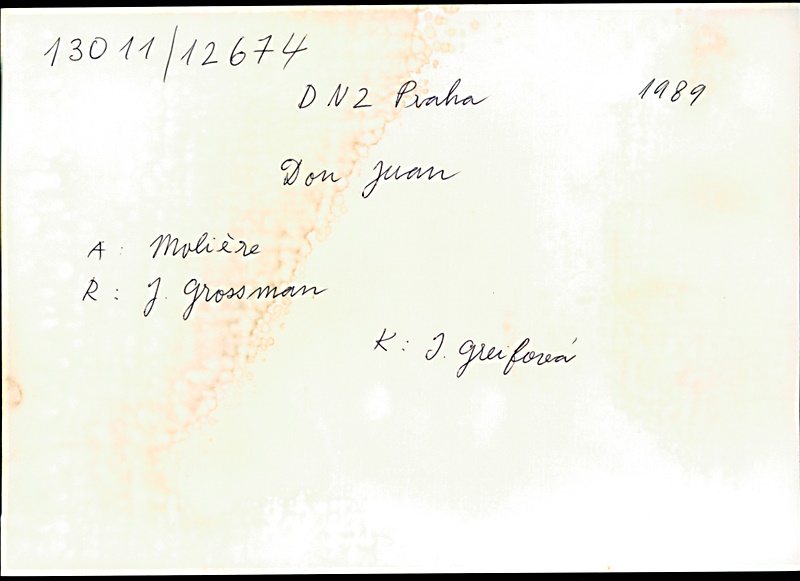 13011/12674
DNZ Praha 1989
Don Juan
A: Molière
R: J. Grossman
K: J. Greifová